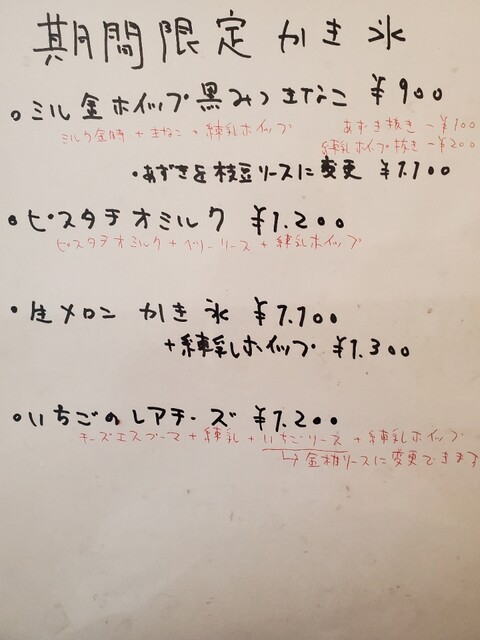 期間限定 かき氷
○ミル金ホイップ黒みつきなこ ¥900
ミルク金時+きなこ+練乳ホイップ あずき抜き -¥100
練乳ホイップ抜き -¥200
・あずきを枝豆リースに変更 ¥1.100
・ピスタチオミルク ¥1.200
ピスタチオミルク+ベリーリース+練乳ホイップ
・生メロン かき氷 ¥1.100
+練乳しホイップ ¥1.300
○いちごのレアチーズ ¥1.200
チーズエスプーマ+練乳+いちごリース+練乳ホイップ
↳金柑リースに変更できます